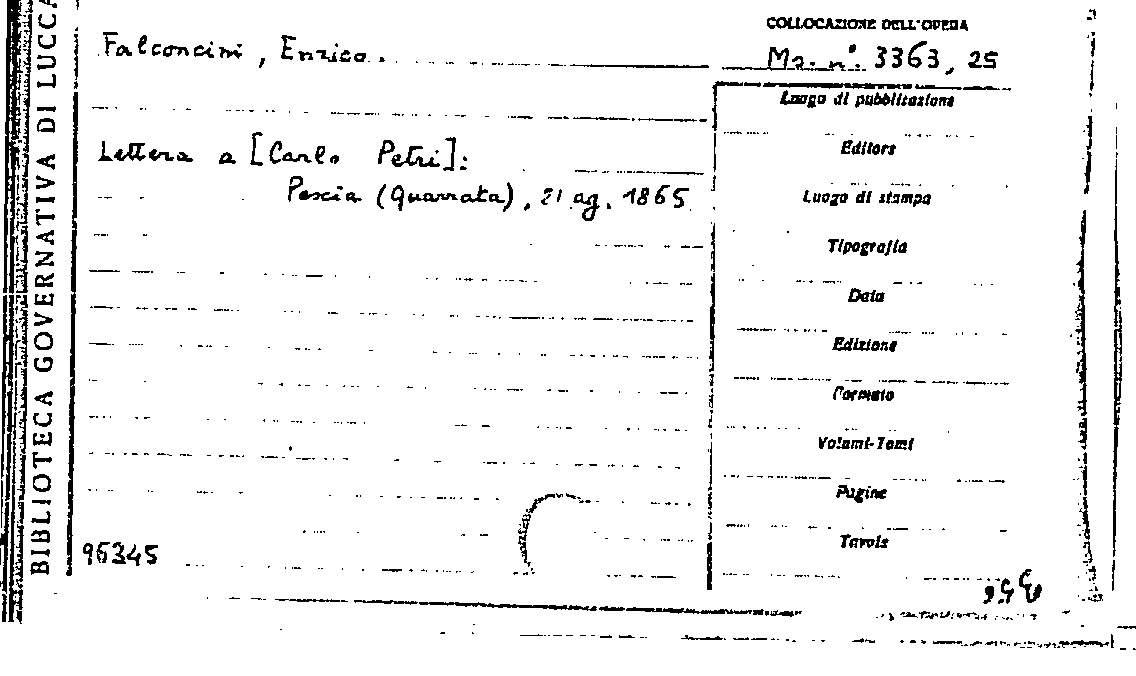 BIBLIOTECA GOVERNATIVA DI LUCCA
COLLOCAZIONE DELL'OPERA
Falconcini, Enrico.
Ms. n°. 3363, 25
Luogo di pubblicazione
Lettera a [Carlo Petri]:
Editore
Pescia (Quarrata), 21 ag. 1865
Luogo di stampa
Tipografia
Data
Edizione
Formato
Volumi-Tomi
Pagine
Tavole
96345